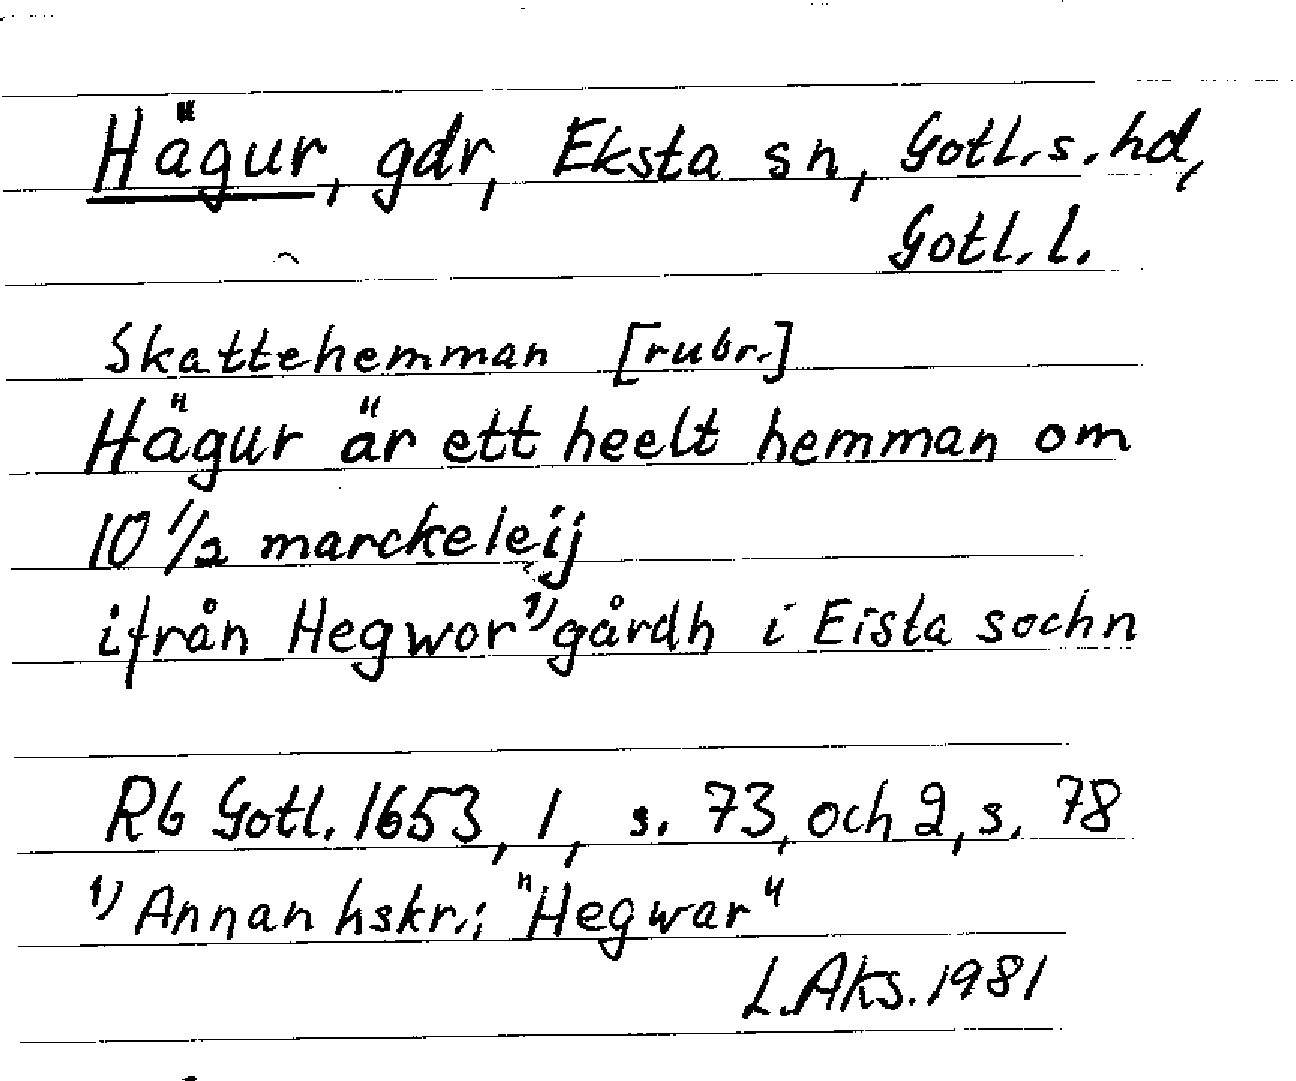 Hägur, gdr, Eksta sn, Gotl. s. hd,
Gotl. l.
Skattehemman [rubr.]
Hägur är ett heelt hemman om
10 1/2 marckeleij
ifrån Hegwor 1) gårdh i Eista sochn
Rb Gotl. 1653, 1, s. 73, och 2, s. 78
1) Annan hskr.: "Hegwar"
L. Aks. 1981